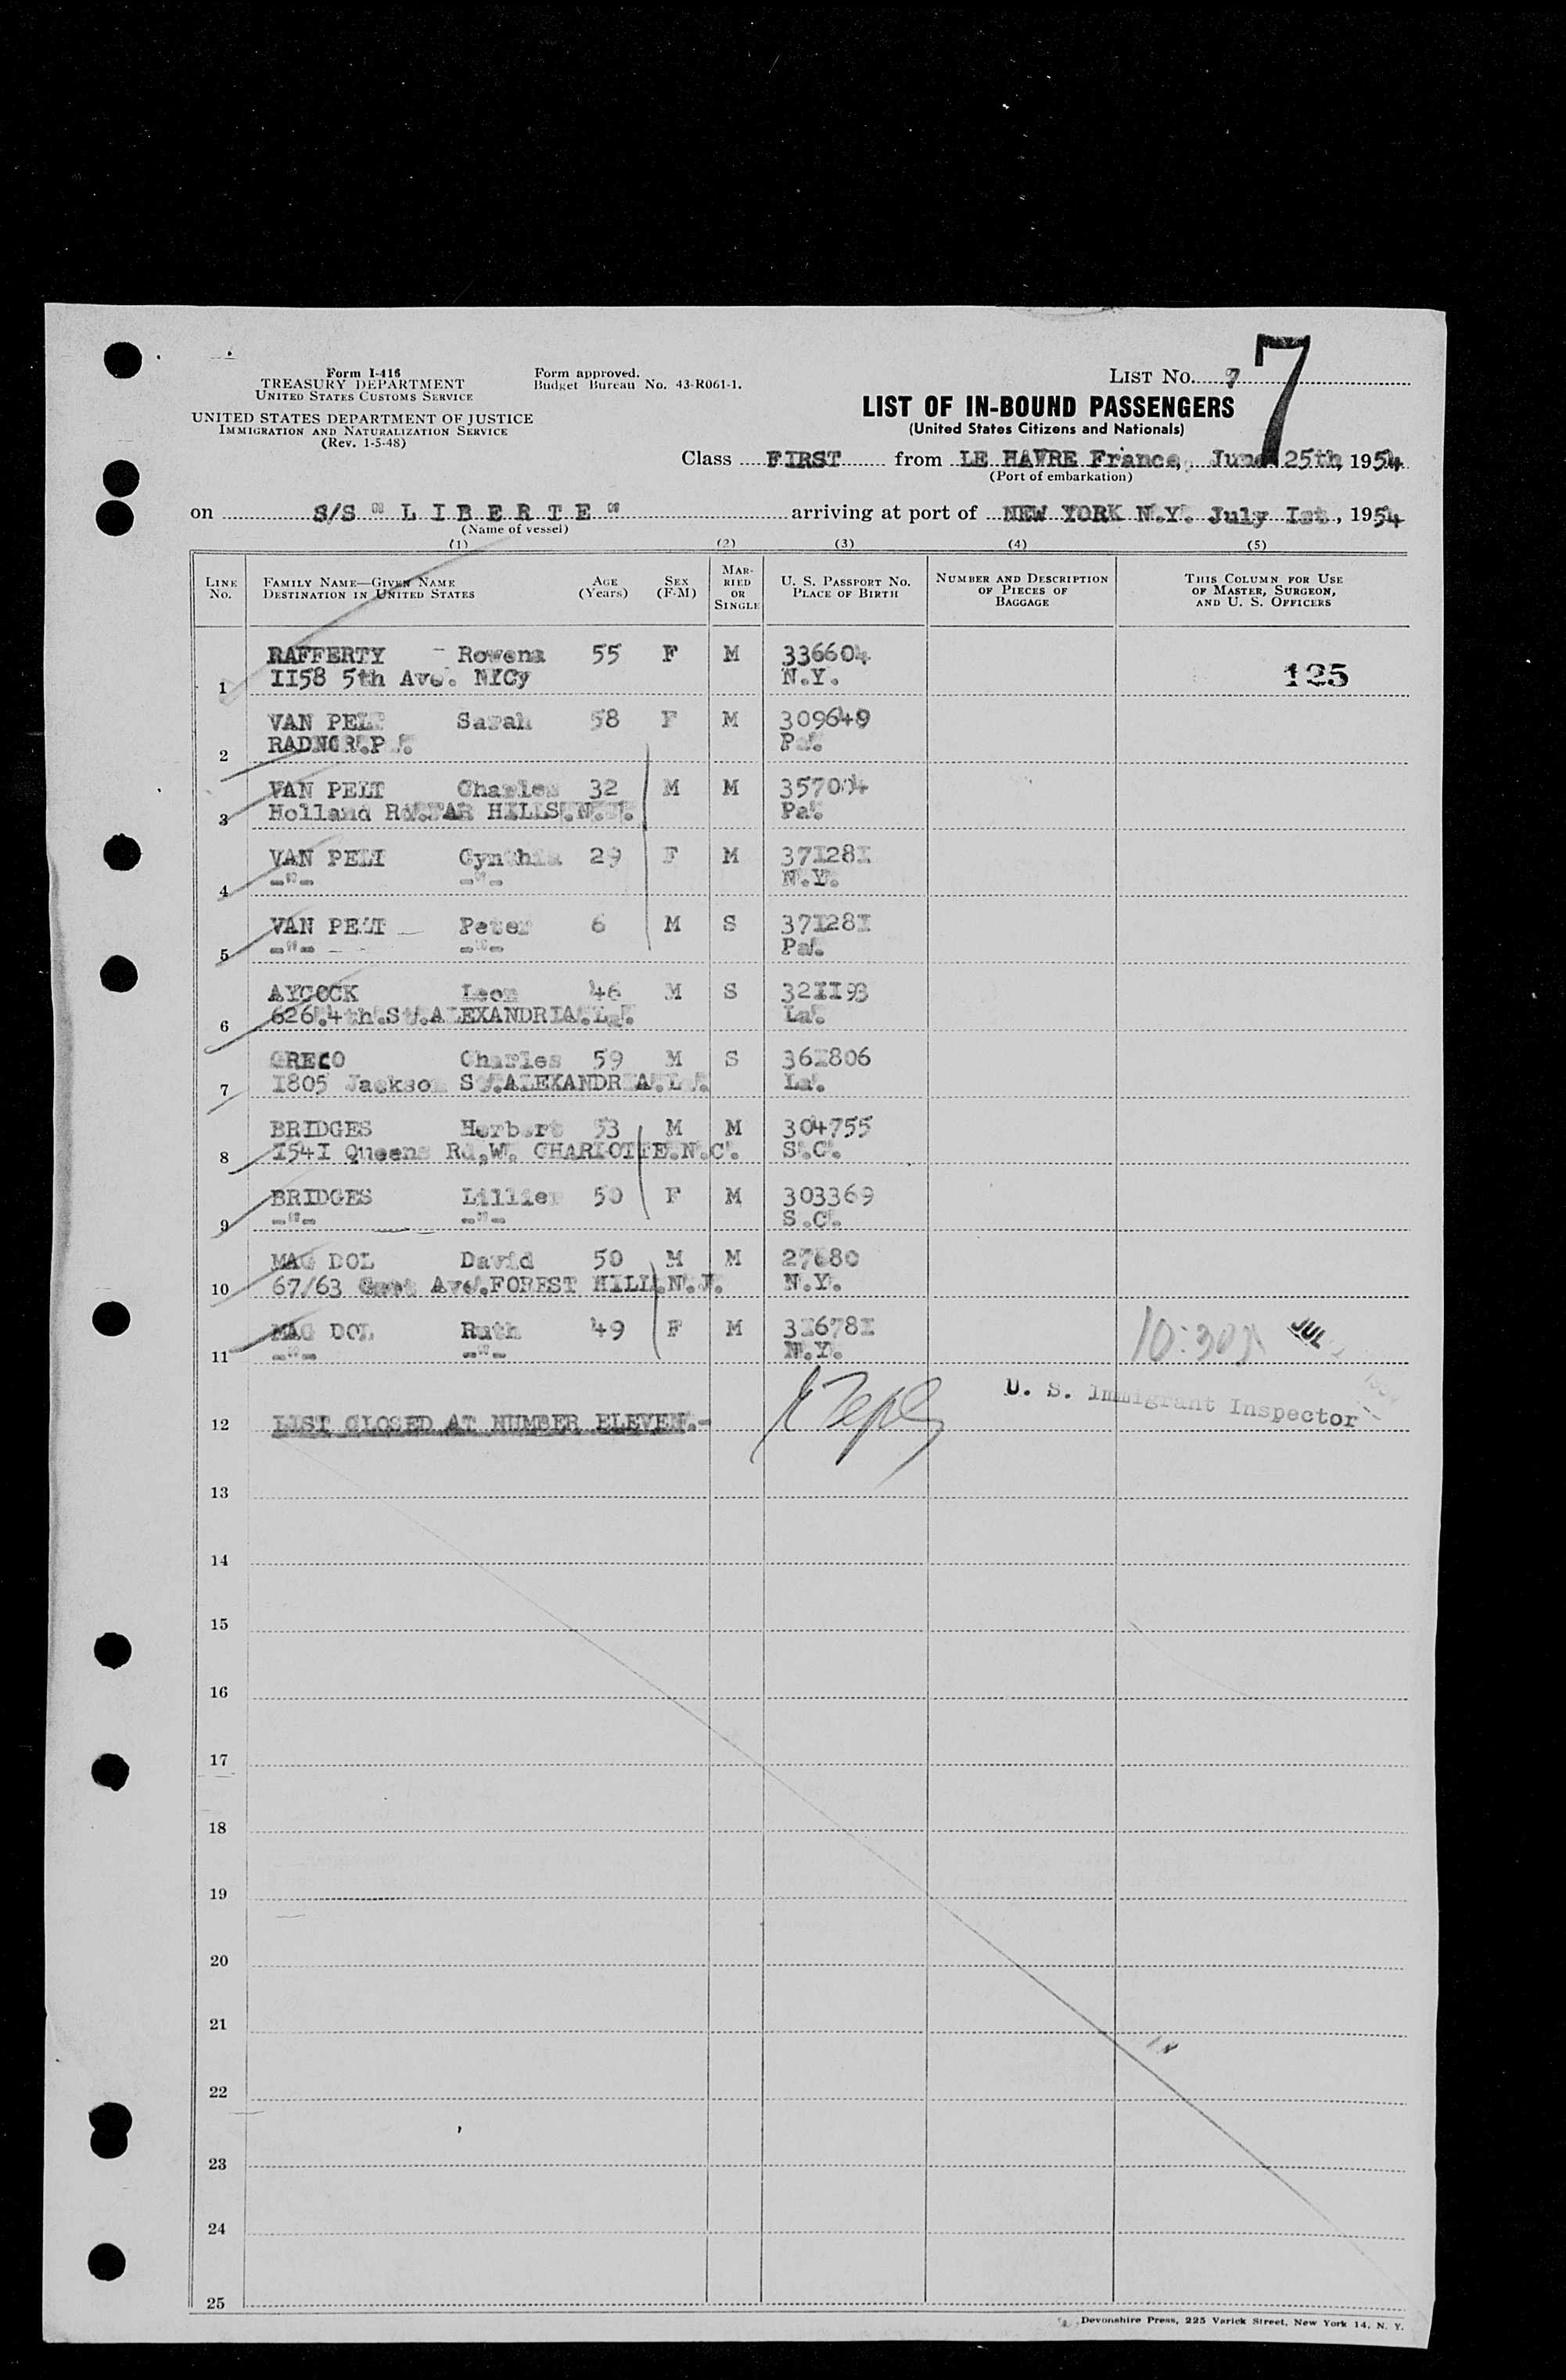 Form I-416
TREASURY DEPARTMENT
UNITED STATES CUSTOMS SERVICE
UNITED STATES DEPARTMENT OF JUSTICE
IMMIGRATION AND NATURALIZATION SERVICE
(Rev. 1-5-48)
Form approved.
Budget Bureau No. 43-R061-1.
LIST NO. 7
7
LIST OF IN-BOUND PASSENGERS
(United States Citizens and Nationals)
Class FIRST from LE HAVRE France, June 25th, 1954
(Port of embarkation)
on S/S " L I B E R T E " arriving at port of NEW YORK N.Y. July Ist, 1954
(Name of vessel)
(1) (2) (3) (4) (5)
LINE NO.
FAMILY NAME—GIVEN NAME
DESTINATION IN UNITED STATES
AGE
(Years)
SEX
(F-M)
MARRIED OR SINGLE
U. S. PASSPORT NO.
PLACE OF BIRTH
NUMBER AND DESCRIPTION
OF PIECES OF
BAGGAGE
THIS COLUMN FOR USE
OF MASTER, SURGEON,
AND U. S. OFFICERS
RAFFERTY - Rowena 55 F M 336604
1 II58 5th Ave. NYCy N.Y. 125
VAN PELT Sarah 58 F M 309649
2 RADNOR.P . Pa.
VAN PELT Charles 32 M M 357004
3 Holland Rd.FAR HILLS.N.J. Pa.
VAN PELT Cynthia 29 F M 37I28I
4 -"- -"- N.Y.
VAN PELT Peter 6 M S 37I28I
5 -"- -"- Pa.
AYCOCK Leon 46 M S 32II93
6 626.4th.St.ALEXANDRIA.La. La.
GRECO Charles 59 M S 36I806
7 I805 Jackson St.ALEXANDRIA.L . La.
BRIDGES Herbert 53 M M 304755
8 I54I Queens Rd.W. CHARLOTTE.N.C. S.C.
BRIDGES Lillier 50 F M 303369
9 -"- -"- S.C.
MAG DOL David 50 M M 27680
10 67/63 Ave.FOREST HILL.N.Y. N.Y.
MAG DOL Ruth 49 F M 3I678I
11 -"- -"- N.Y.
10:30 JUL
U. S. Immigrant Inspector
12 LIST CLOSED AT NUMBER ELEVEN.-
13
14
15
16
17
18
19
20
21
22
23
24
25
Devonshire Press, 225 Varick Street, New York 14, N. Y.